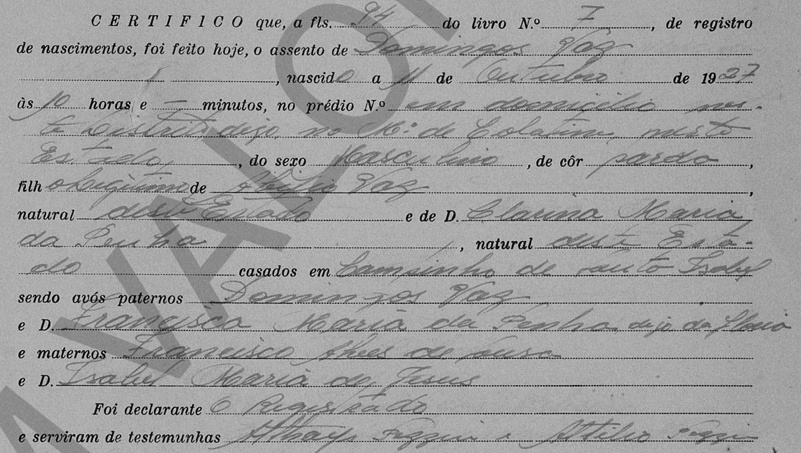 CERTIFICO que, a fls. 94 do livro N.º I, de registro
de nascimentos, foi feito hoje, o assento de Domingos Vaz
, nascido a 11 de Outubro de 1927
às 10 horas e — minutos, no prédio N.º em domicilio nes-
te Districto, digo, no M.º de Colatina, neste
Estado, , do sexo Masculino, de côr parda,
filho legitimo de Vaz,
natural deste Estado e de D. Clarina Maria
da Penha, natural deste Esta-
do casados em de Santo Isabel
sendo avós paternos Domingos Vaz
e D. Francisca Maria da Penha digo da Gloria
e maternos Francisco Alves de Sousa
e D. Isabel Maria de Jesus
Foi declarante O Registrado
e serviram de testemunhas e Attilio
VALO